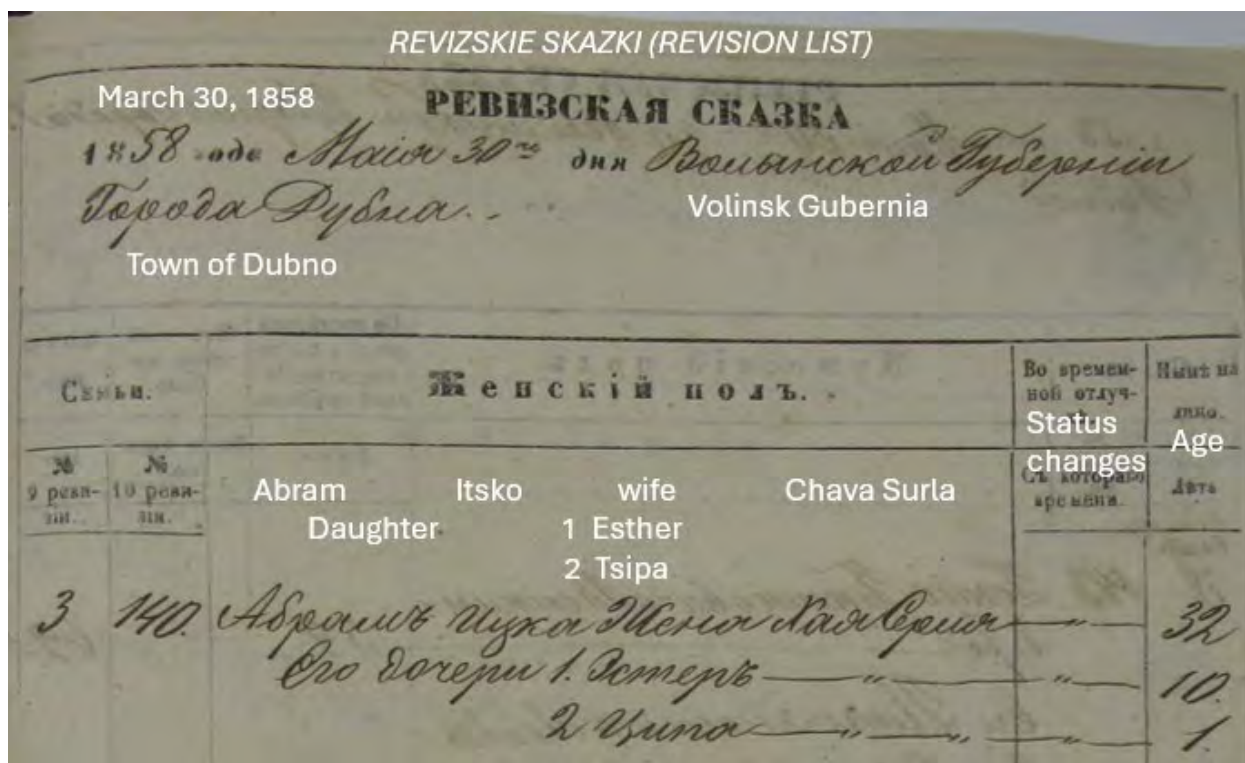 REVIZSKIE SKAZKI (REVISION LIST)
March 30, 1858
РЕВИЗСКАЯ СКАЗКА
1858 года Маія 30го дня Волынской Губерніи
Города Дубна.
Volinsk Gubernia
Town of Dubno
Семьи.
Женскій полъ.
Во времен-
ной отлуч-
Status
changes
Съ котораго
времени.
Нынѣ на
лицо.
Age
Лѣта
№
9 реви-
зіи.
№
10 реви-
зіи.
Abram Itsko wife Chava Surla
Daughter 1 Esther
2 Tsipa
3 140. Абрамъ Ицка Жена Хая 32
Его дочери 1. Эстеръ — " — " — 10.
2 Ципа — " — " — " — 1.